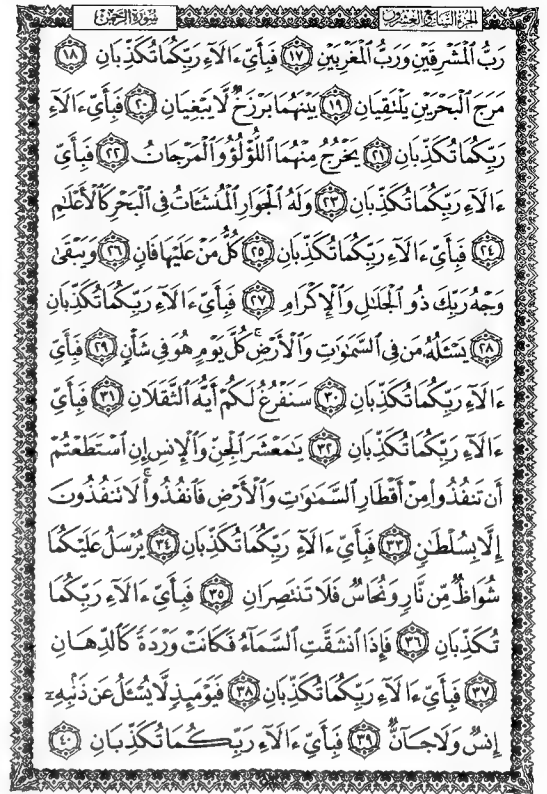 الجزء السابع والعشرون سورة الرحمن
رَبُّ ٱلْمَشْرِقَيْنِ وَرَبُّ ٱلْمَغْرِبَيْنِ ١٧ فَبِأَىِّ ءَالَآءِ رَبِّكُمَا تُكَذِّبَانِ ١٨
مَرَجَ ٱلْبَحْرَيْنِ يَلْتَقِيَانِ ١٩ بَيْنَهُمَا بَرْزَخٌ لَّا يَبْغِيَانِ ٢٠ فَبِأَىِّ ءَالَآءِ
رَبِّكُمَا تُكَذِّبَانِ ٢١ يَخْرُجُ مِنْهُمَا ٱللُّؤْلُؤُ وَٱلْمَرْجَانُ ٢٢ فَبِأَىِّ
ءَالَآءِ رَبِّكُمَا تُكَذِّبَانِ ٢٣ وَلَهُ ٱلْجَوَارِ ٱلْمُنشَـَٔاتُ فِى ٱلْبَحْرِ كَٱلْأَعْلَٰمِ
٢٤ فَبِأَىِّ ءَالَآءِ رَبِّكُمَا تُكَذِّبَانِ ٢٥ كُلُّ مَنْ عَلَيْهَا فَانٍ ٢٦ وَيَبْقَىٰ
وَجْهُ رَبِّكَ ذُو ٱلْجَلَٰلِ وَٱلْإِكْرَامِ ٢٧ فَبِأَىِّ ءَالَآءِ رَبِّكُمَا تُكَذِّبَانِ
٢٨ يَسْـَٔلُهُۥ مَن فِى ٱلسَّمَٰوَٰتِ وَٱلْأَرْضِ ۚ كُلَّ يَوْمٍ هُوَ فِى شَأْنٍ ٢٩ فَبِأَىِّ
ءَالَآءِ رَبِّكُمَا تُكَذِّبَانِ ٣٠ سَنَفْرُغُ لَكُمْ أَيُّهَ ٱلثَّقَلَانِ ٣١ فَبِأَىِّ
ءَالَآءِ رَبِّكُمَا تُكَذِّبَانِ ٣٢ يَٰمَعْشَرَ ٱلْجِنِّ وَٱلْإِنسِ إِنِ ٱسْتَطَعْتُمْ
أَن تَنفُذُوا۟ مِنْ أَقْطَارِ ٱلسَّمَٰوَٰتِ وَٱلْأَرْضِ فَٱنفُذُوا۟ ۚ لَا تَنفُذُونَ
إِلَّا بِسُلْطَٰنٍ ٣٣ فَبِأَىِّ ءَالَآءِ رَبِّكُمَا تُكَذِّبَانِ ٣٤ يُرْسَلُ عَلَيْكُمَا
شُوَاظٌ مِّن نَّارٍ وَنُحَاسٌ فَلَا تَنتَصِرَانِ ٣٥ فَبِأَىِّ ءَالَآءِ رَبِّكُمَا
تُكَذِّبَانِ ٣٦ فَإِذَا ٱنشَقَّتِ ٱلسَّمَآءُ فَكَانَتْ وَرْدَةً كَٱلدِّهَانِ
٣٧ فَبِأَىِّ ءَالَآءِ رَبِّكُمَا تُكَذِّبَانِ ٣٨ فَيَوْمَئِذٍ لَّا يُسْـَٔلُ عَن ذَنۢبِهِۦٓ
إِنسٌ وَلَا جَآنٌّ ٣٩ فَبِأَىِّ ءَالَآءِ رَبِّكُمَا تُكَذِّبَانِ ٤٠